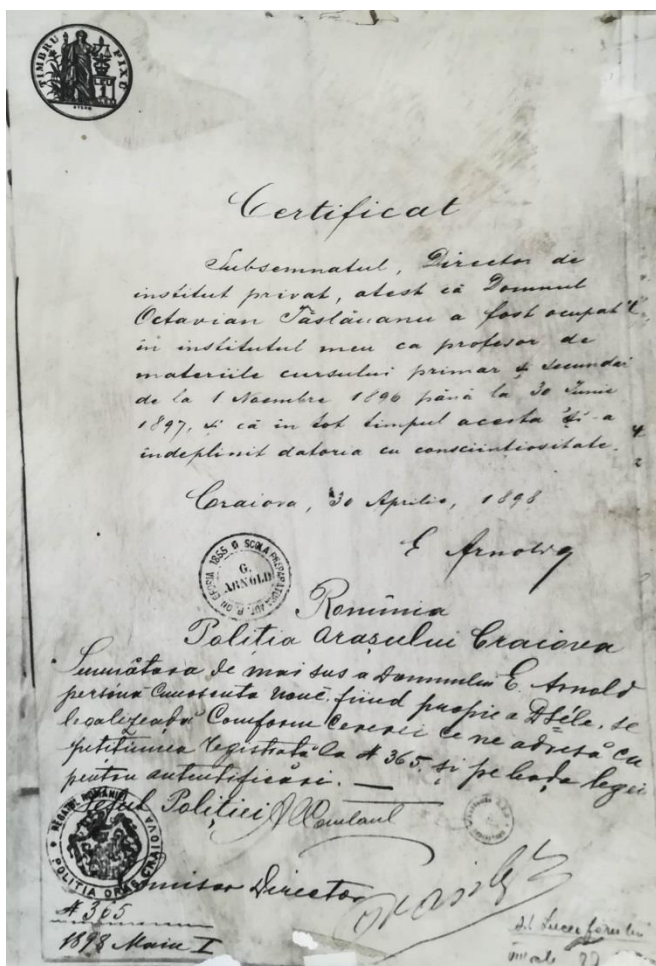 TIMBRU FIXU
Certificat
Subsemnatul, Director de
institut privat, atest că Domnul
Octavian Tăslăuanu a fost ocupat
in institutul meu ca profesor de
materiile cursului primar și secundar
de la 1 Noembre 1896 până la 30 Iunie
1897, și că in tot timpul acesta și-a
indeplinit datoria cu consciintiositate.
Craiova, 30 Aprilie, 1898
E Arnold
1855
G.
ARNOLD
România
Politia Orașului Craiova
de mai sus a Domnului E. Arnold
persona cunoscuta nouĕ, fiind proprie a Dséle, se
legalizeadă Conform Cererei ce ne adresă cu
petitiunea registrată la № 365 și pe baza legei
pentru autentificări. —
Șeful Poliției
REGATUL ROMÂNIEI
POLITIA ORAS. CRAIOVA
Comisar Director
№ 365
1898 Maiu 1